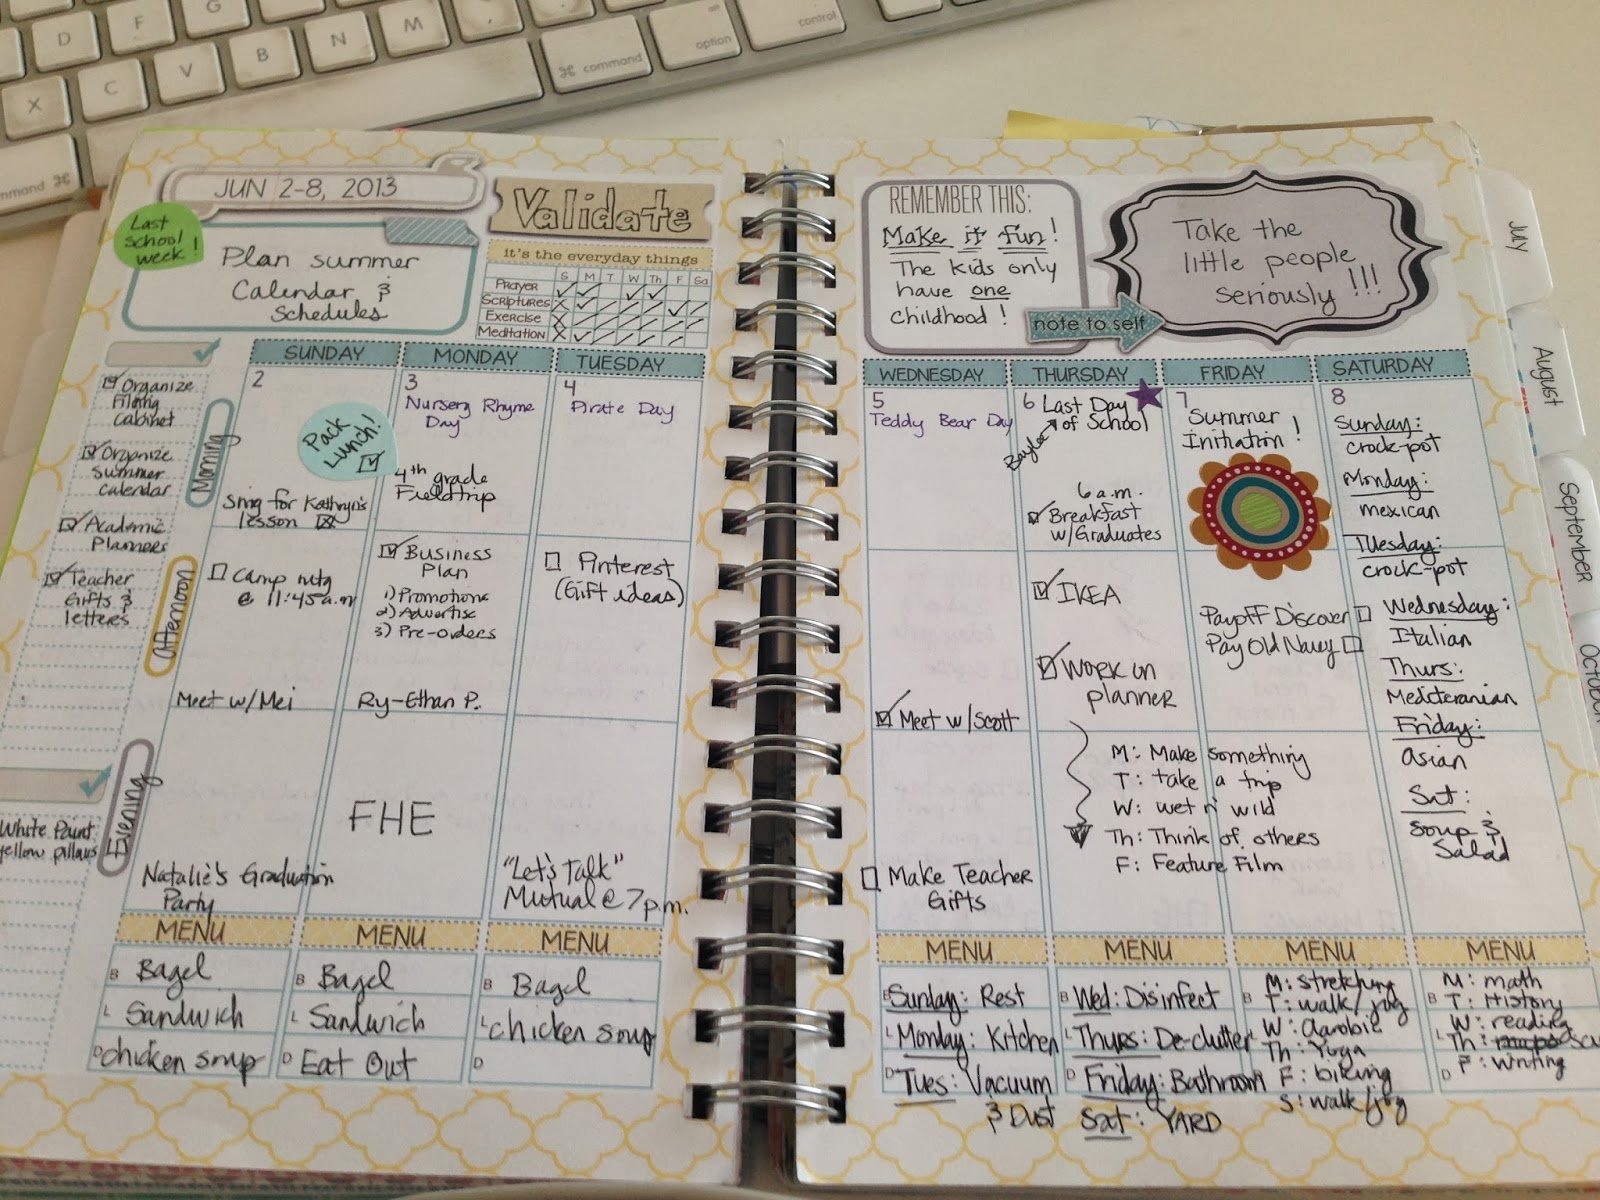 D
F
G
H
X
C
V
B
N
M
command
option
control
command
JUN 2-8, 2013
Last
school
week!
Plan summer
Calendar &
Schedules
Validate
it's the everyday things
S M T W Th F Sa
Prayer
Scriptures
Exercise
Meditation
Organize
Filing
Cabinet
Organize
summer
calendar
Academic
Planners
Teacher
Gifts &
letters
White Paint
yellow pillows
Morning
Afternoon
Evening
SUNDAY
2
Pack
Lunch!
Sing for Kathryn's
lesson
Camp mtg
@ 11:45a.m
Meet w/Mei
Natalie's Graduation
Party
MENU
B Bagel
L Sandwich
D chicken soup
MONDAY
3
Nursery Rhyme
Day
4th grade
Fieldtrip
Business
Plan
1) Promotions
2) Advertise
3) Pre-orders
Ry-Ethan P.
FHE
MENU
B Bagel
L Sandwich
D Eat Out
TUESDAY
4
Pirate Day
Pinterest
(Gift ideas)
"Let's Talk"
Mutual @ 7p.m.
MENU
B Bagel
L chicken soup
D
REMEMBER THIS:
Make it fun!
The kids only
have one
childhood!
note to self
Take the
little people
seriously!!!
WEDNESDAY
5
Teddy Bear Day
Meet w/Scott
Make Teacher
Gifts
MENU
B Sunday: Rest
L Monday: Kitchen
D Tues: Vacuum
& Dust
THURSDAY
6 Last Day
of School
Baylee
6 a.m.
Breakfast
w/Graduates
IKEA
Work on
planner
M: Make something
T: take a trip
W: wet n' wild
Th: Think of others
F: Feature Film
MENU
B Wed: Disinfect
L Thurs: De-clutter
D Friday: Bathroom
Sat: YARD
FRIDAY
7
Summer
Initiation!
Payoff Discover
Pay Old Navy
MENU
M: stretching
B T: walk/jog
W: Aarobic
L Th: Yoga
D F: biking
S: walk/jog
SATURDAY
8
Sunday:
crock-pot
Monday:
mexican
Tuesday:
crock-pot
Wednesday:
Italian
Thurs:
Mediteranian
Friday:
asian
Sat:
Soup &
Salad
MENU
M: math
B T: History
W: reading
L Th:
D F: writing
July
August
September
October